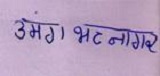 उमंग भटनागर